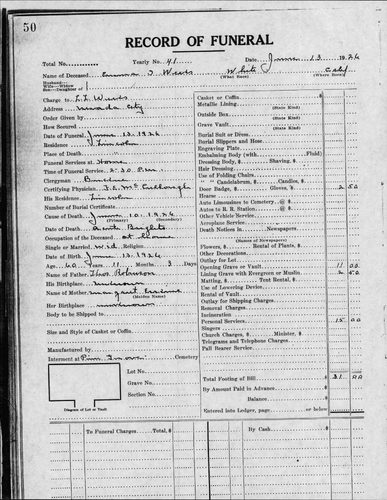 50
RECORD OF FUNERAL
Total No. Yearly No. 41 Date June 13 1926
Name of Deceased Emma J. White Calif
(What Race) (Where Born)
Husband
Wife—Widow
Son—Daughter of
Charge to
Address Nevada City
Order Given by
How Secured
Date of Funeral June 13, 1926
Residence Lincoln
Place of Death
Funeral Services at Home
Time of Funeral Service
Clergyman
Certifying Physician
His Residence Lincoln
Number of Burial Certificate
Cause of Death June 10, 1926
(Primary) (Secondary)
Date of Death
Occupation of the Deceased at Home
Single or Married Wid. Religion
Date of Birth June 13, 1926
Age 60 Years 11 Months 3 Days
Name of Father Thos Robinson
His Birthplace unknown
Name of Mother Margaret
(Maiden Name)
Her Birthplace unknown
Body to be Shipped to
Size and Style of Casket or Coffin
Manufactured by
Interment at Cemetery
Lot No.
Grave No.
Section No.
Diagram of Lot or Vault
Casket or Coffin
Metallic Lining
(State Kind)
Outside Box
(State Kind)
Grave Vault
(State Kind)
Burial Suit or Dress
Burial Slippers and Hose
Engraving Plate
Embalming Body (with Fluid)
Dressing Body, $ Shaving, $
Hair Dressing
Use of Folding Chairs
" Candelabrum, $ Candles, $
Door Badge, $ Gloves, $ 2 50
Hearse
Auto Limousines to Cemetery @ $
Autos to R. R. Station @ $
Other Vehicle Service
Aeroplane Service
Death Notices in Newspapers
(Names of Newspapers)
Flowers, $ Rental of Plants, $
Other Decorations
Outlay for Lot
Opening Grave or Vault 11 00
Lining Grave with Evergreen or Muslin 2 50
Matting, $ Tent Rental, $
Use of Lowering Device
Rental of Vault
Outlay for Shipping Charges
Removal Charges
Incineration
Personal Services 15 00
Singers
Church Charges, $ Minister, $
Telegrams and Telephone Charges
Pall Bearer Service
Total Footing of Bill $ 31 00
By Amount Paid in Advance $
Balance $
Entered into Ledger, page or below
To Funeral Charges Total, $
By Cash $